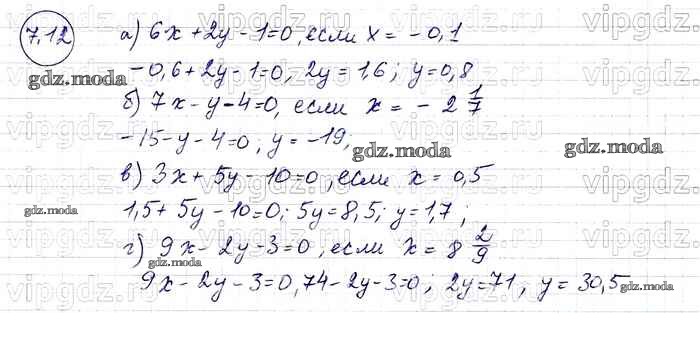 7.12 а) 6x + 2y - 1 = 0, если x = - 0,1
- 0,6 + 2y - 1 = 0, 2y = 1,6; y = 0,8
gdz.moda
б) 7x - y - 4 = 0, если x = - 2 1/7
- 15 - y - 4 = 0; y = - 19;
gdz.moda
gdz.moda
в) 3x + 5y - 10 = 0, если x = 0,5
gdz.moda
1,5 + 5y - 10 = 0; 5y = 8,5; y = 1,7;
г) 9x - 2y - 3 = 0, если x = 8 2/9
gdz.moda
9x - 2y - 3 = 0, 74 - 2y - 3 = 0; 2y = 71, y = 30,5
gdz.moda
vipgdz.ru